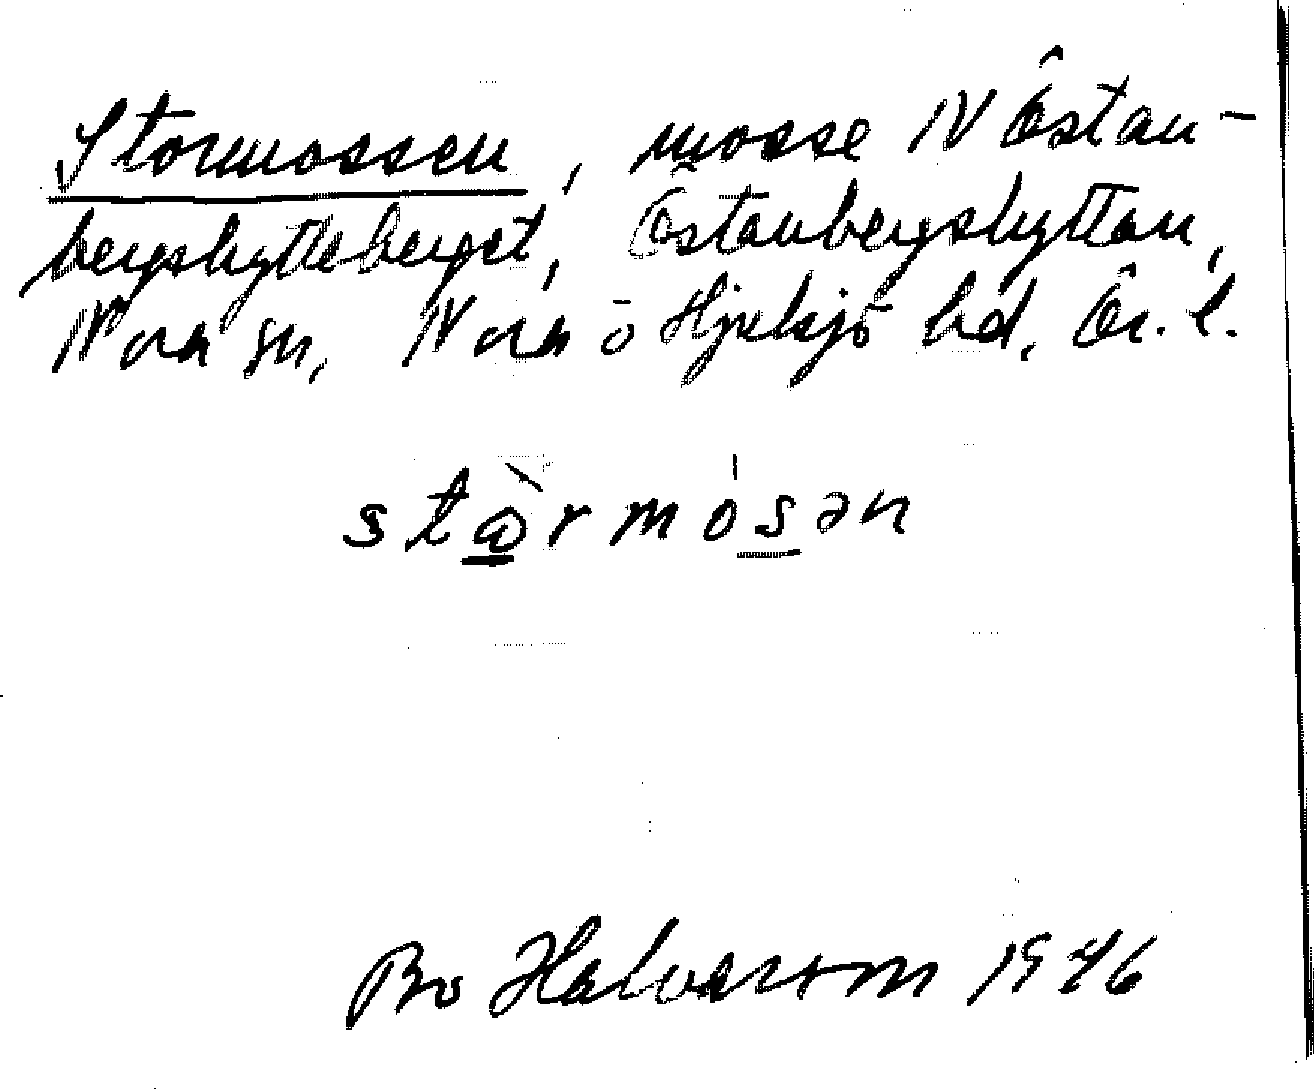 Stormossen, mosse NV Östan-
bergshytteberget, Östanbergshyttan,
Nora sn, Nora o Hjulsjö hd. Ör. l.
stὼrmósən
Bo Halvarson 1946